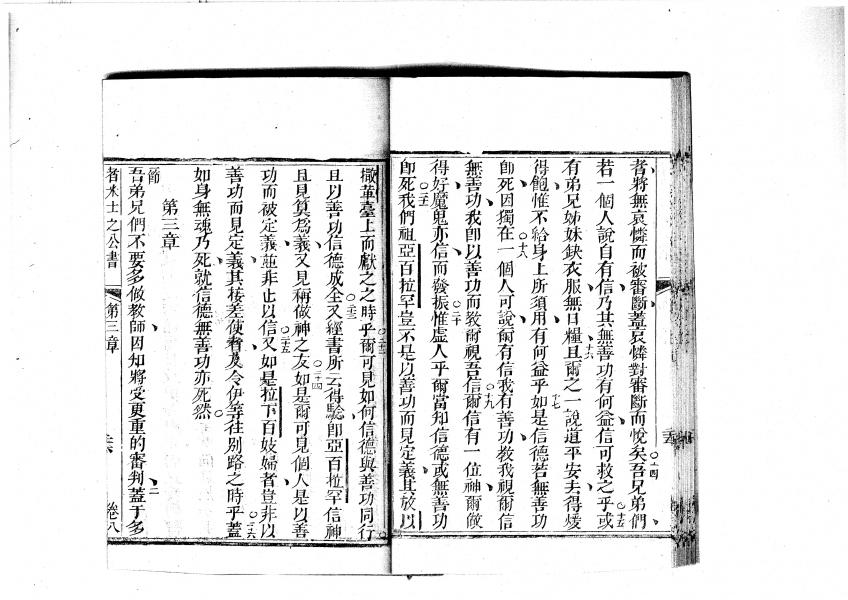 者將無哀憐而被審斷蓋哀憐對審斷而悅矣○十四吾兄弟們
若一個人說自有信乃其無善功有何益信可救之乎○十五或
有弟兄姊妹缺衣服無日糧○十六且爾之一說道平安去得煖
得飽惟不給身上所須用有何益乎○十七如是信德若無善功
卽死因獨在○十八一個人可說爾有信我有善功教我視爾信
無善功我卽以善功而教爾視吾信○十九爾信有一位神爾傚
得好魔鬼亦信而發振○二十惟虛人乎爾當知信德或無善功
卽死○二十一我們祖亞百拉罕豈不是以善功而見定義其放以
撒革臺上而獻之之時乎○二十二爾可見如何信德與善功同行
且以善功信德成全○二十三又經書所云得驗卽亞百拉罕信神
且見算為義又見稱做神之友○二十四如是爾可見個人是以善
功而被定義並非止以信○二十五又如是拉下百妓婦者豈非以
善功而見定義其接差使者及令伊等往別路之時乎○二十六蓋
如身無魂乃死就信德無善功亦死然
第三章
節吾弟兄們不要多做教師因知將受更重的審判二蓋于多
者米士之公書 第三章 卷八